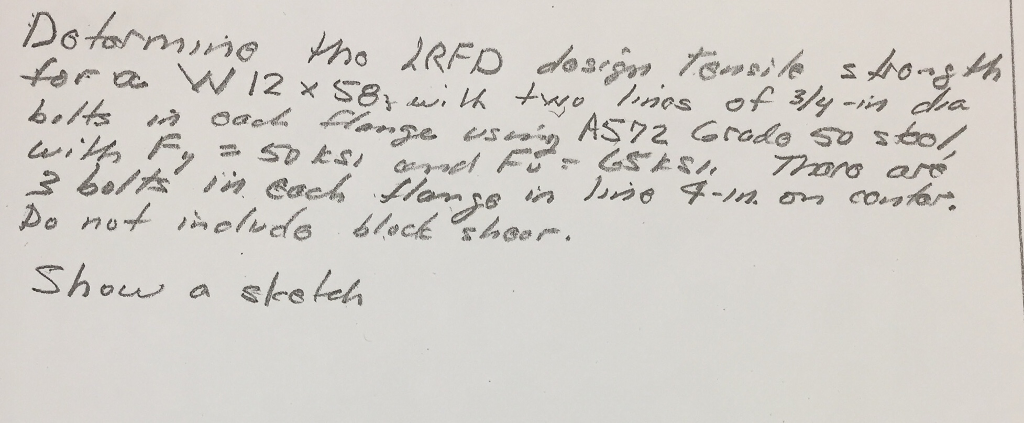 Determine the LRFD design tensile strength
for a W 12 x 58, with two lines of 3/4-in dia
bolts in each flange using A572 Grade 50 steel,
with Fy = 50 ksi and Fu = 65 ksi. There are
3 bolts in each flange in line 4-in. on center.
Do not include block shear.
Show a sketch